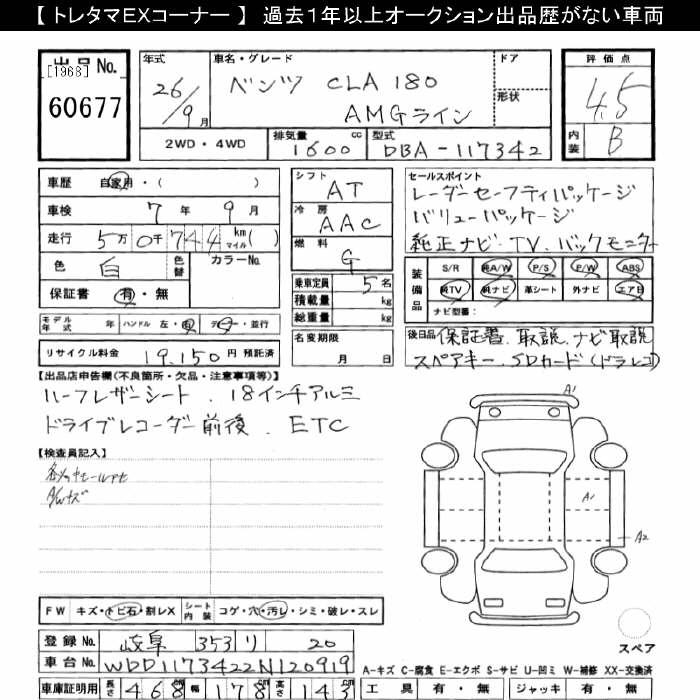 【 トレタマEXコーナー 】 過去1年以上オークション出品歴がない車両
出品No. [1968] 60677
年式 26年9月
車名・グレード ベンツ CLA 180
AMGライン
ドア
形状
評価点 4.5
内装 B
2WD・4WD
排気量 1600 cc
型式 DBA-117342
車歴 自家用・( )
車検 7年9月
走行 5万0千744 km マイル( )
色 白 色替 カラーNo.
保証書 有・無
シフト AT
冷房 AAC
燃料 G
乗車定員 5名
積載量 kg
総重量 kg
セールスポイント
レーダーセーフティパッケージ
バリューパッケージ
純正ナビ・TV、バックモニター
装備品 S/R 純A/W P/S P/W ABS
純TV 純ナビ 革シート 外ナビ エアB
ナビ型番:
モデル年式 年 ハンドル 左・右 ディーラー・並行
リサイクル料金 19,150円 預託済
名変期限 月 日
後日品 保証書、取説、ナビ取説
スペアキー、SDカード(ドラレコ)
【出品店申告欄(不良箇所・欠品・注意事項等)】
ハーフレザーシート、18インチアルミ
ドライブレコーダー前後、ETC
【検査員記入】
A/Wキズ
A1
A1
A2
FW キズ・トビ石・割レX シート内装 コゲ・穴・汚レ・シミ・破レ・スレ
スペア
登録No. 岐阜 353 リ 20
車台No. WDD1173422N120919
A-キズ C-腐食 E-エクボ S-サビ U-凹ミ W-補修 XX-交換済
車庫証明用 長さ 468cm 幅 178cm 高さ 143cm
工具 有・無 ジャッキ 有・無